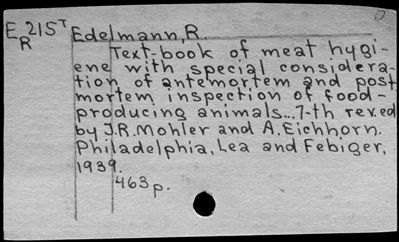 E 21ST Edelmann, R.
R
Text-book of meat hygi-
ene with special considera-
tion of antemortem and post
mortem inspection of food-
producing animals...7-th rev.ed
by J.R.Mohler and A.Eichhorn.
Philadelphia, Lea and Febiger,
1939.
463p.